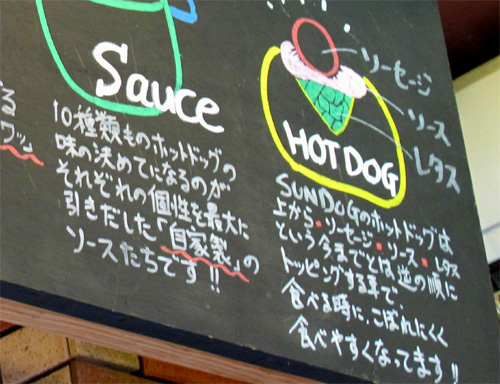 Sauce
10種類ものホットドッグの
味の決めてになるのが
それぞれの個性を最大に
引きだした「自家製」の
ソースたちです!!
ソーセージ
ソース
レタス
HOT DOG
SUNDOGのホットドッグは
上から・ソーセージ・ソース・レタス
という今までとは逆の順に
トッピングする事で、
食べる時に、こぼれにくく
食べやすくなってます!!